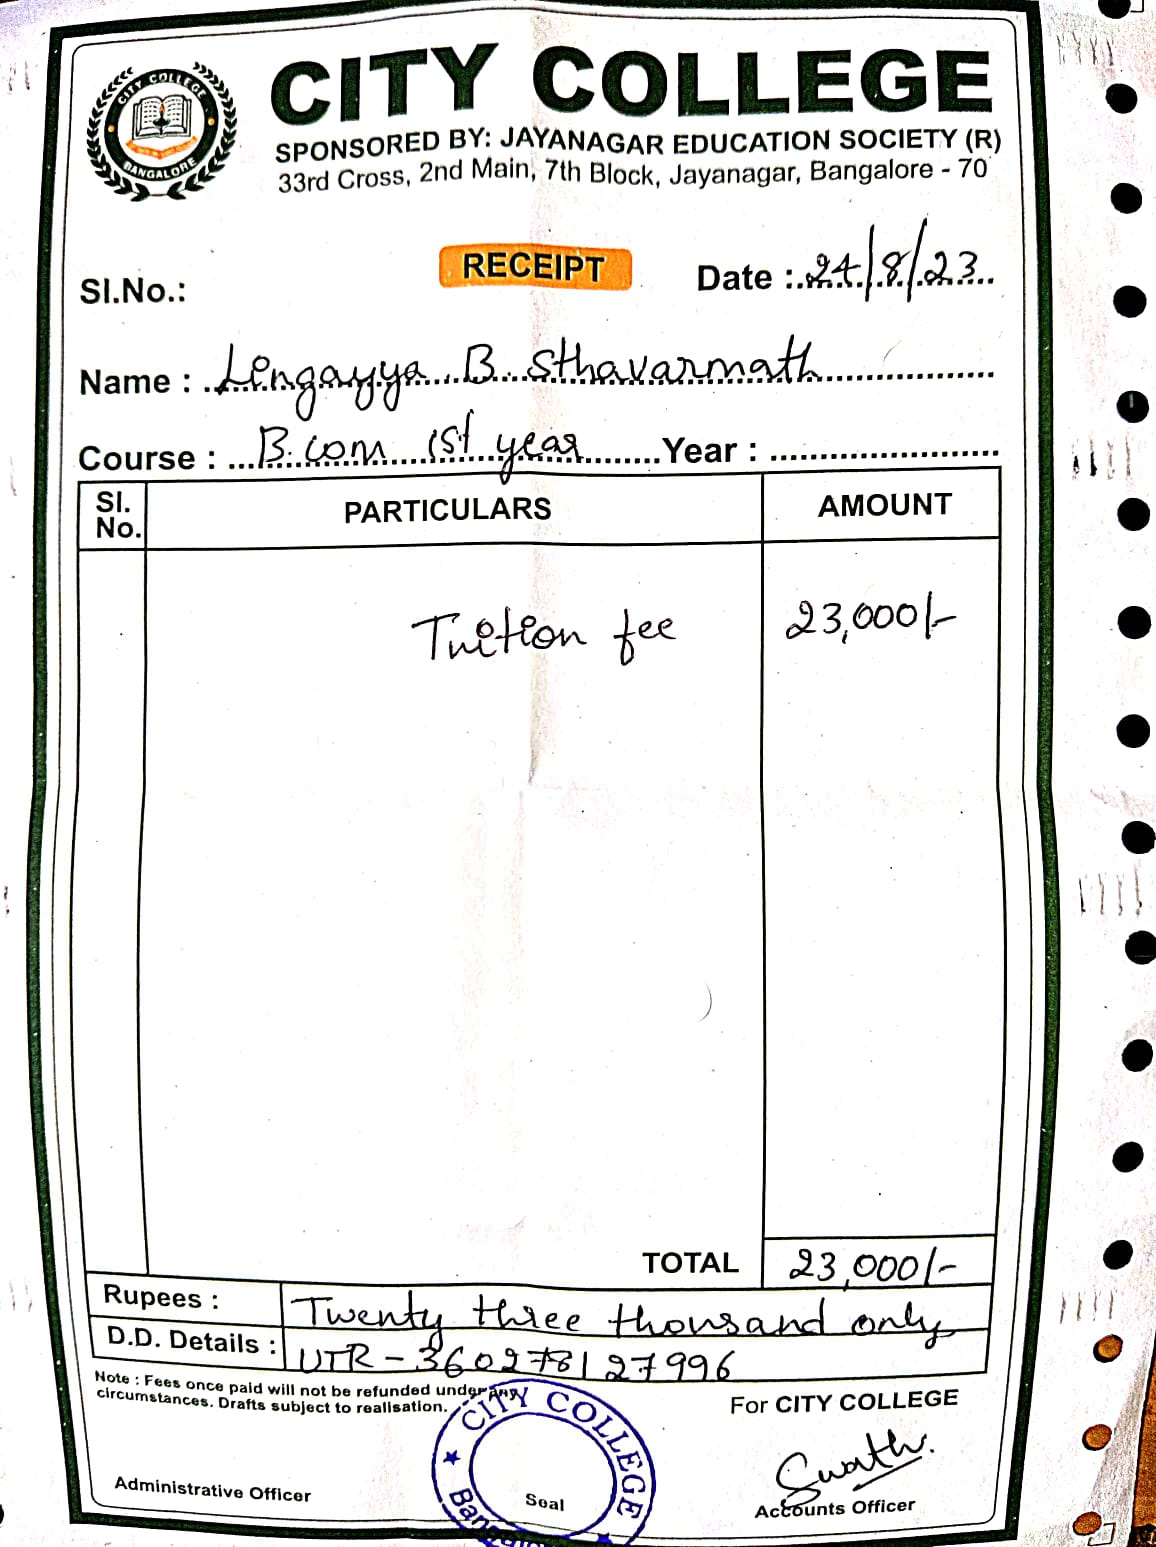 CITY COLLEGE
BANGALORE
CITY COLLEGE
SPONSORED BY: JAYANAGAR EDUCATION SOCIETY (R)
33rd Cross, 2nd Main, 7th Block, Jayanagar, Bangalore - 70
RECEIPT
Sl.No.:
Date : 24/8/23
Name : Lingayya B. Sthavarmath
Course : B.com 1st year Year :
Sl. No. PARTICULARS AMOUNT
Tuition fee 23,000/-
TOTAL 23,000/-
Rupees : Twenty three thousand only
D.D. Details : UTR-360278127996
Note : Fees once paid will not be refunded under any
circumstances. Drafts subject to realisation.
For CITY COLLEGE
CITY COLLEGE
Seal
Swath.
Administrative Officer
Accounts Officer